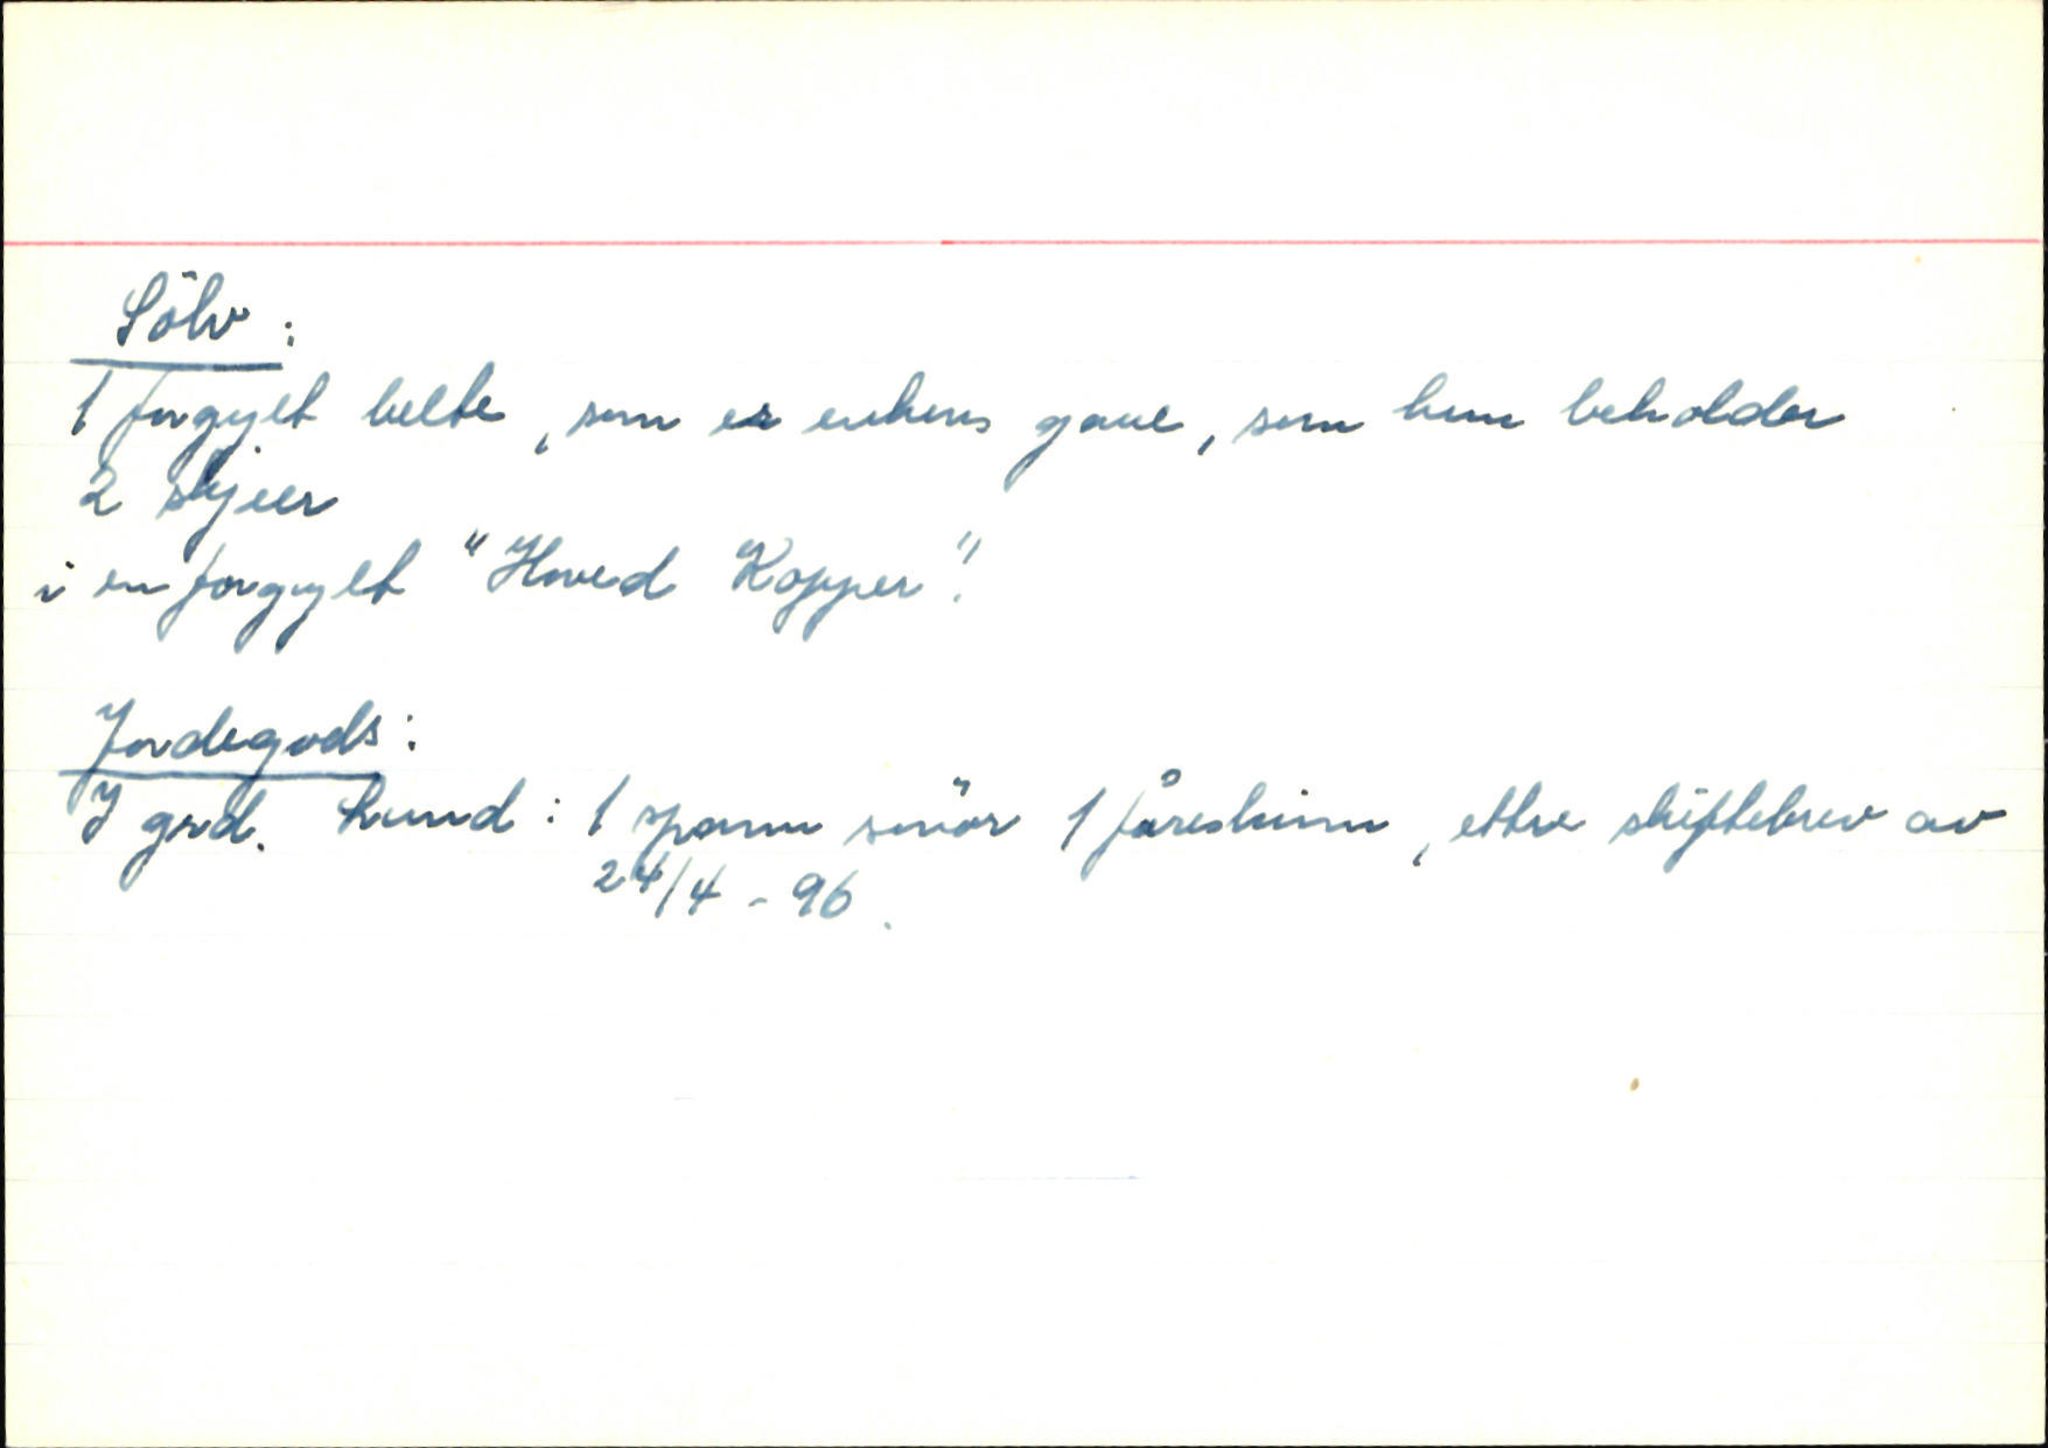 Sölv:
1 forgylt belte, som er enkens gave, som hun beholder
2 skjeer
i en forgylt "Hoved Kopper".
Jordegods:
I grd. Lund: 1 spann smör 1 fåreskinn, ettre skiftebrev av
24/4 - 96.